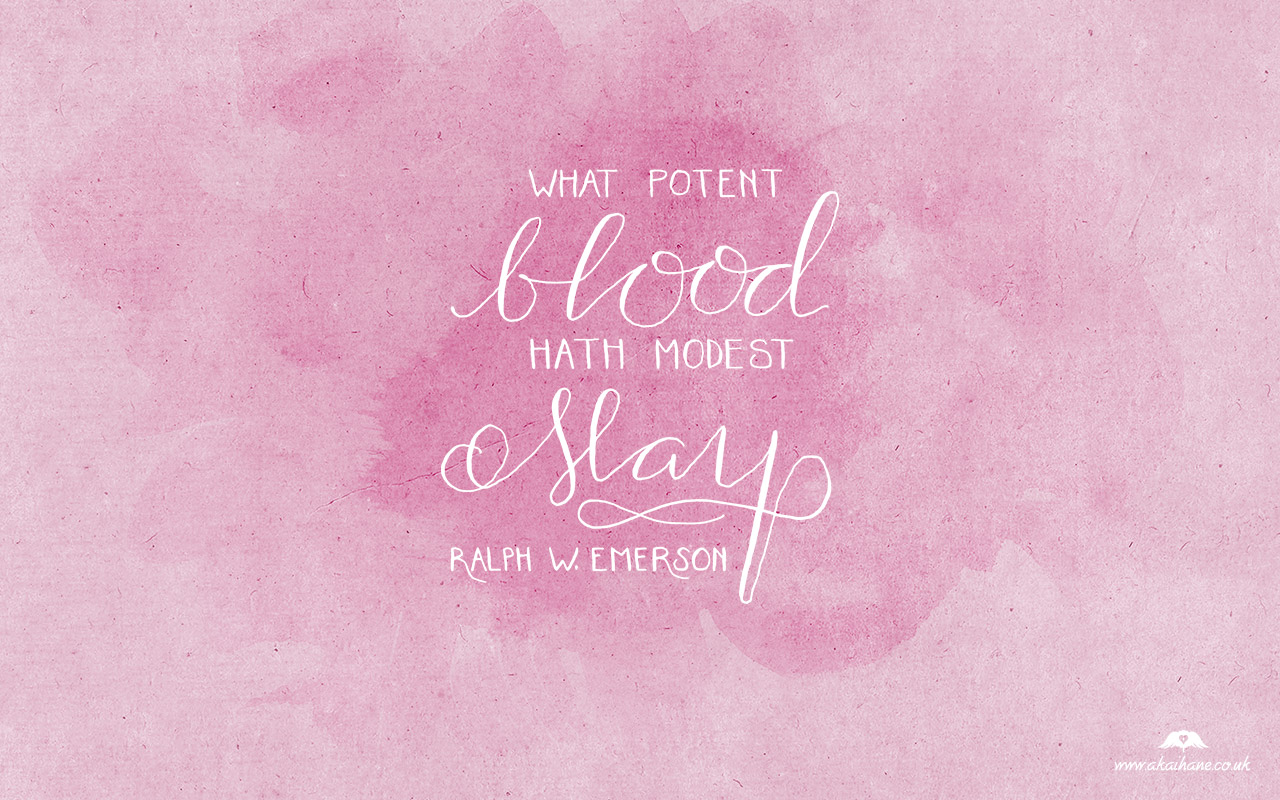 WHAT POTENT
blood
HATH MODEST
May
RALPH W. EMERSON
www.akaihane.co.uk